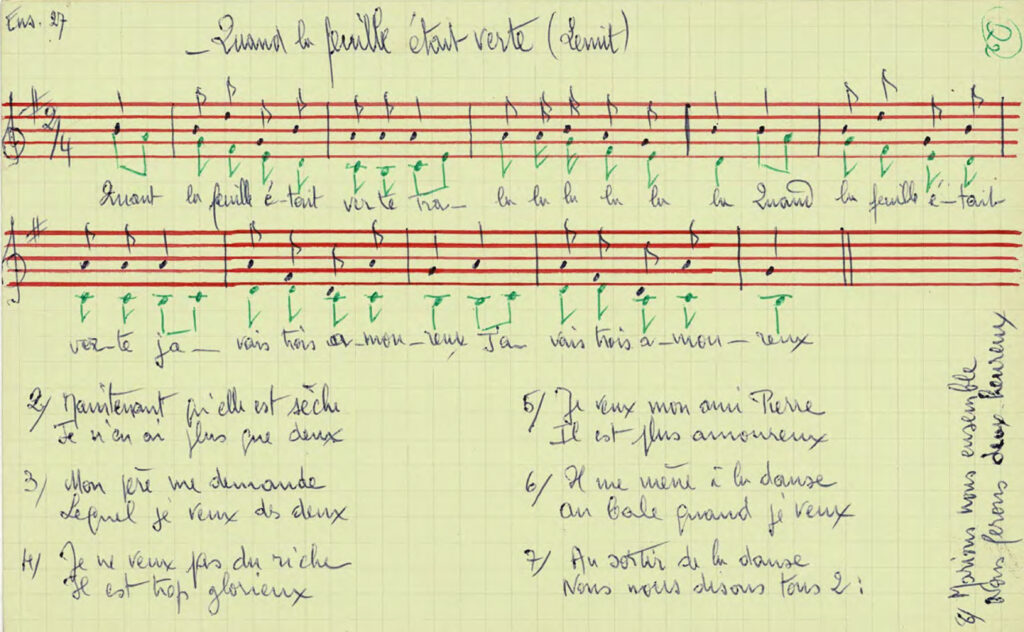 Ens. 27
– Quand la feuille était verte (Lemit)
D2
2/4
Quant la feuille é-tait ver te tra- la la la la la la Quand la feuille é-tait
ver-te ja- vais trois a-mou-reux J'a- vais trois a-mou-reux
2/ Maintenant qu'elle est sèche
Je n'en ai plus que deux
3/ Mon père me demande
Lequel je veux des deux
4/ Je ne veux pas du riche
Il est trop glorieux
5/ Je veux mon ami Pierre
Il est plus amoureux
6/ Il me mène à la danse
au bale quand je veux
7/ Au sortir de la danse
Nous nous disons tous 2 :
8/ Marions nous ensemble
Nous ferons deux heureux